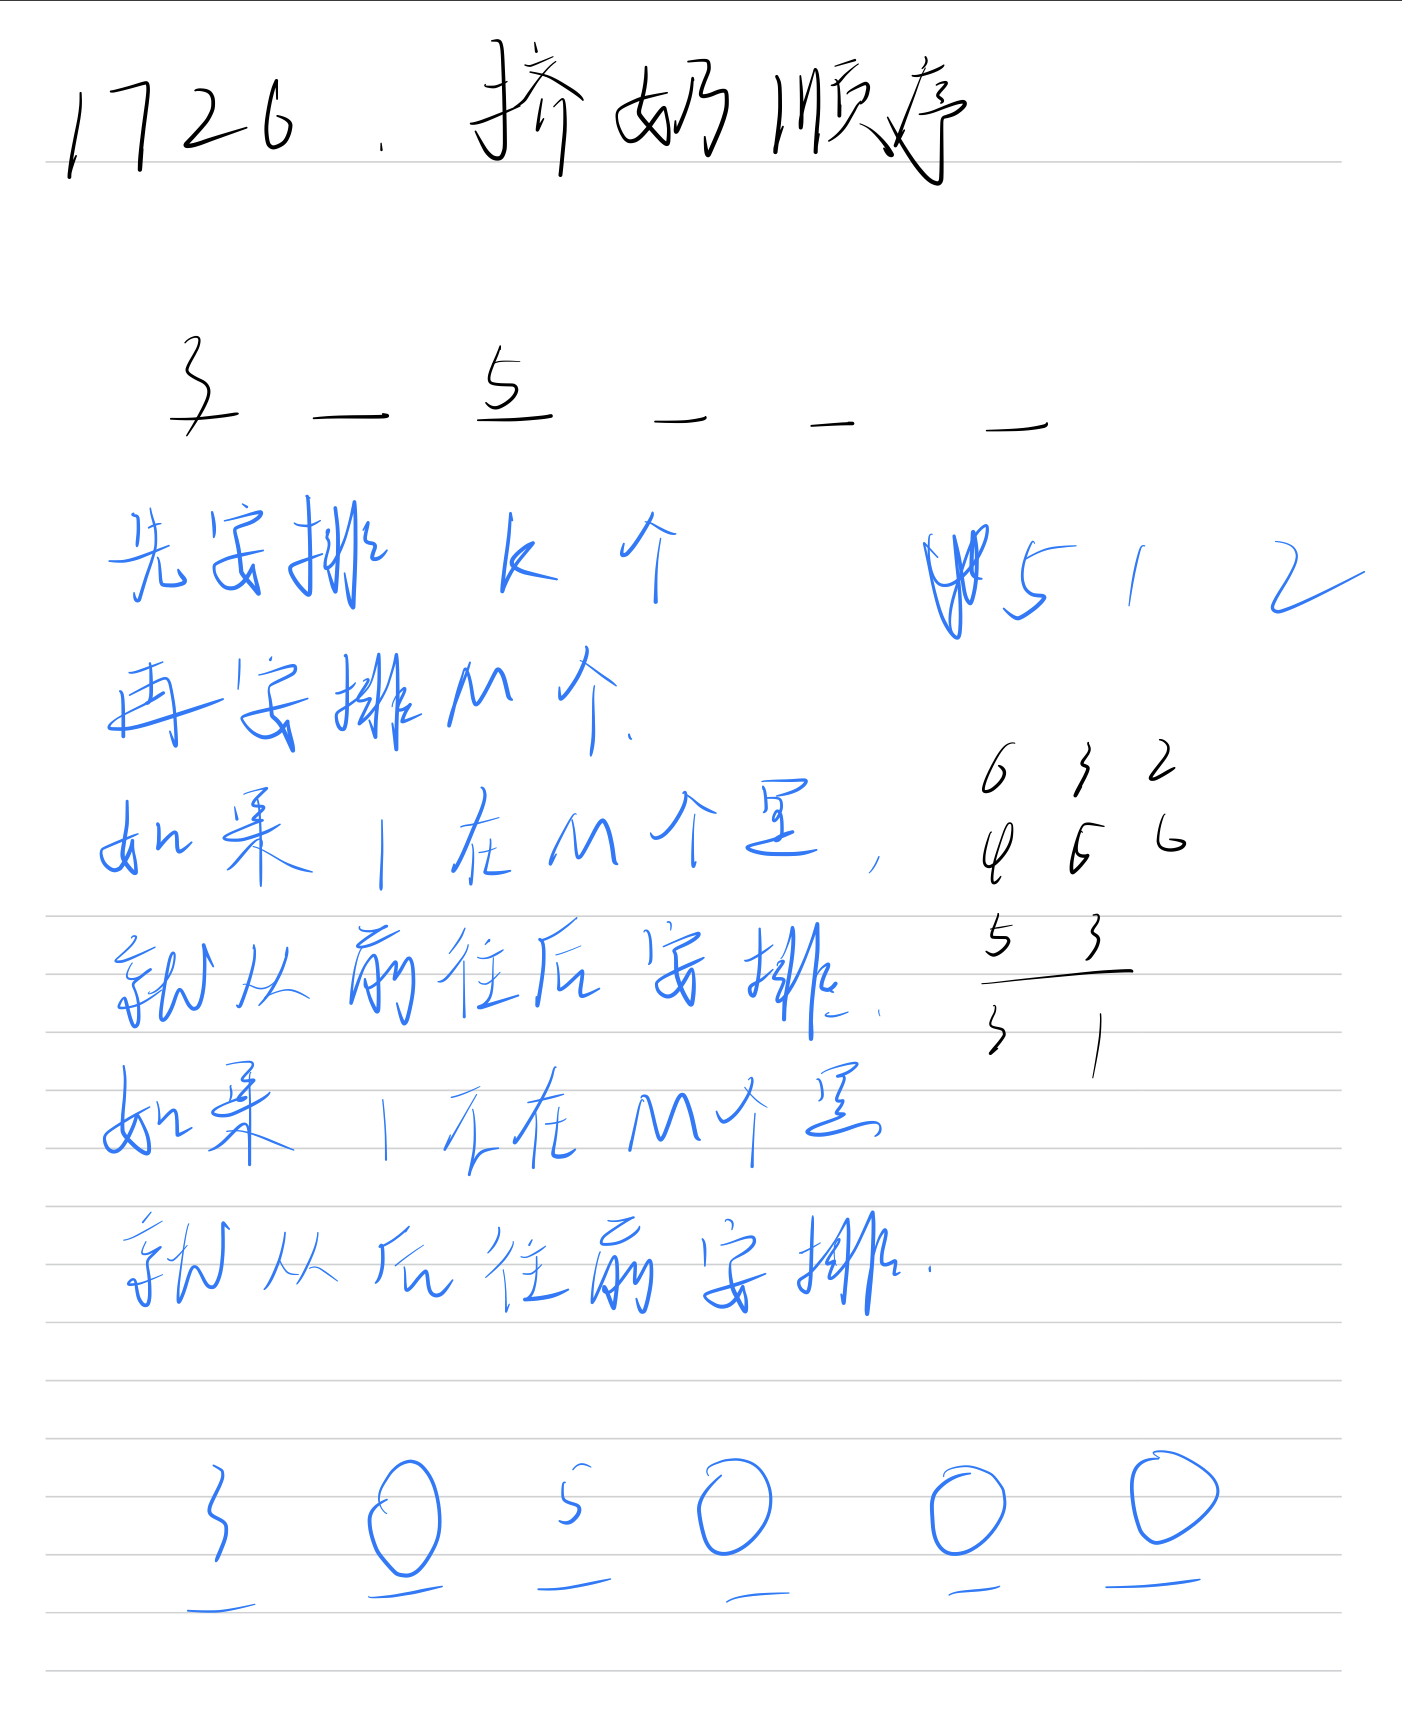 1726. 挤奶顺序
3 _ 5 _ _ _
先安排 K 个
5 1 2
再安排 M 个.
如果 1 在 M 个里,
就从前往后安排.
如果 1 不在 M 个里
就从后往前安排.
6 3 2
4 5 6
5 3
3 1
3 0 5 0 0 0